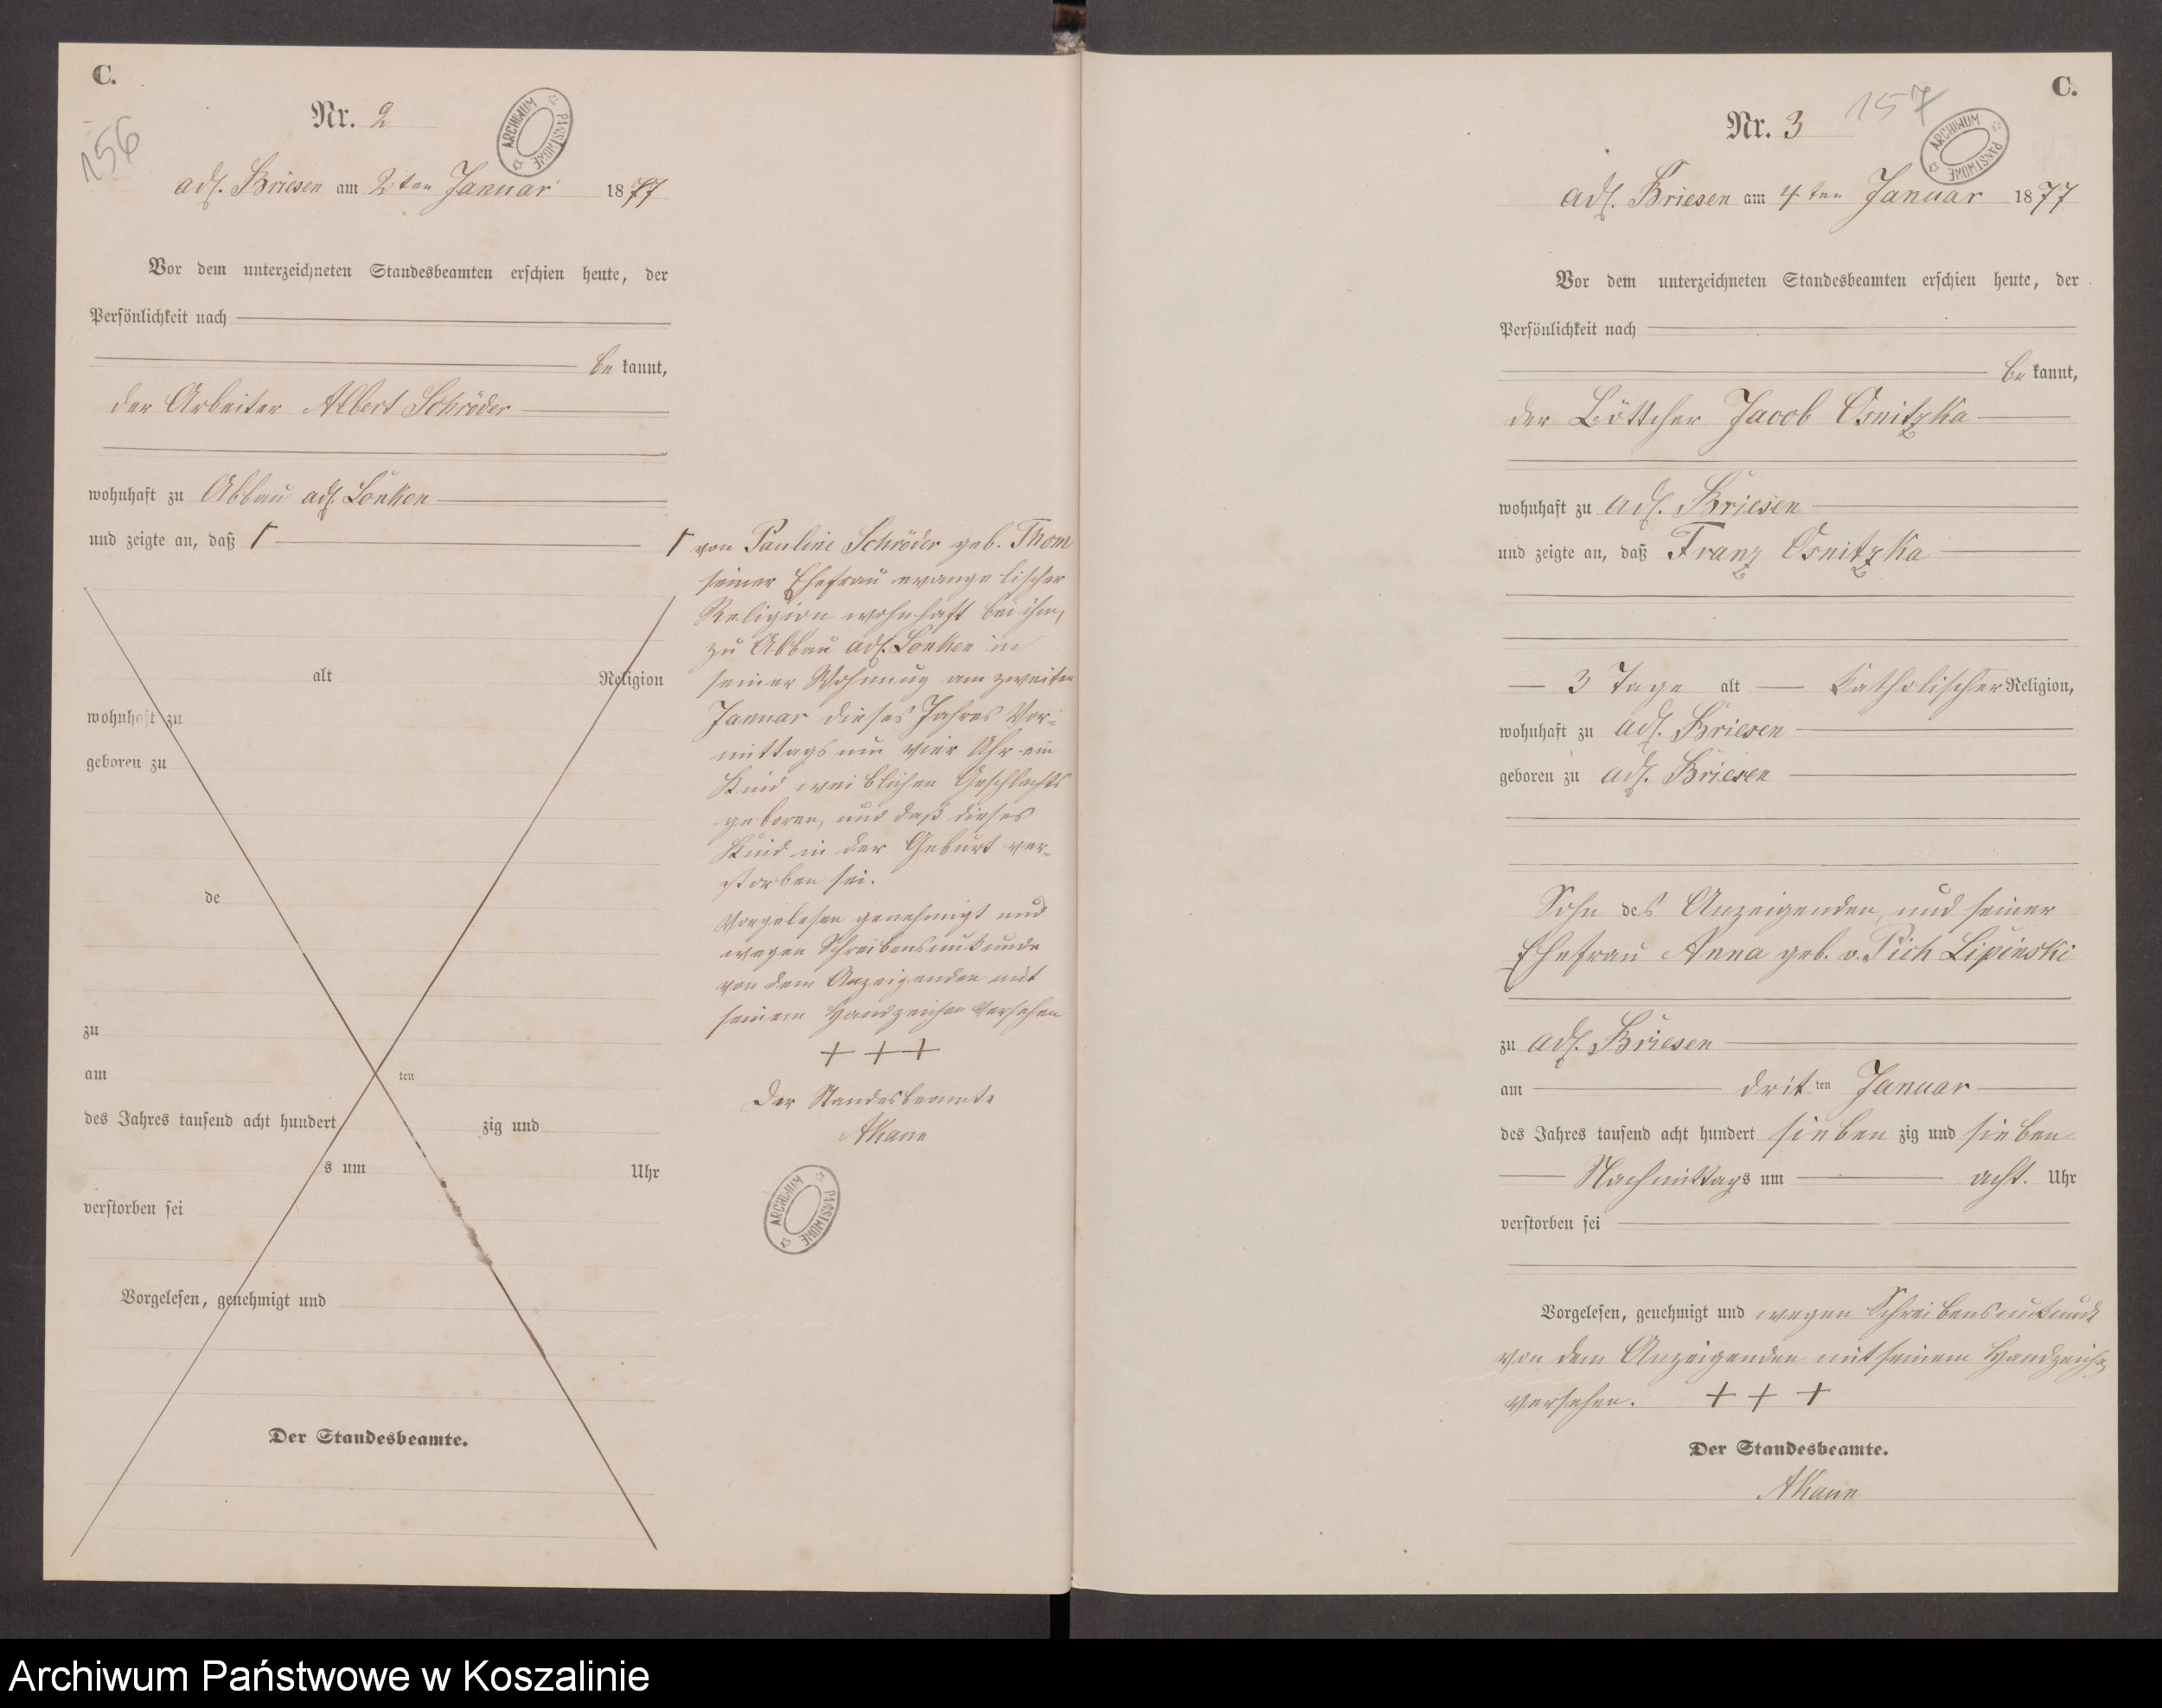 C.
156
Nr. 2
ARCHIWUM PAŃSTWOWE
adl. Briesen am 2ten Januar 1877
Vor dem unterzeichneten Standesbeamten erschien heute, der
Persönlichkeit nach
be kannt,
der Arbeiter Albert Schröder
wohnhaft zu Abbau adl. Lonken
und zeigte an, daß Γ
alt Religion
wohnhaft zu
geboren zu
de
zu
am ten
des Jahres tausend acht hundert zig und
s um Uhr
verstorben sei
Vorgelesen, genehmigt und
Der Standesbeamte.
Γ von Pauline Schröder geb. Thom
seiner Ehefrau evangelischer
Religion wohnhaft bei ihm,
zu Abbau adl. Lonken in
seiner Wohnung am zweiten
Januar dieses Jahres Vor-
mittags um vier Uhr ein
Kind weiblichen Geschlechts
geboren, und daß dieses
Kind in der Geburt ver-
storben sei.
Vorgelesen genehmigt und
wegen Schreibensunkunde
von dem Anzeigenden mit
seinem Handzeichen versehen
+ + +
Der Standesbeamte
AKann
ARCHIWUM PAŃSTWOWE
C.
157
Nr. 3
ARCHIWUM PAŃSTWOWE
adl. Briesen am 4ten Januar 1877
Vor dem unterzeichneten Standesbeamten erschien heute, der
Persönlichkeit nach
be kannt,
der Böttcher Jacob Osnitzka
wohnhaft zu adl. Briesen
und zeigte an, daß Franz Osnitzka
3 Tage alt katholischer Religion,
wohnhaft zu adl. Briesen
geboren zu adl. Briesen
Sohn des Anzeigenden, und seiner
Ehefrau Anna geb. v. Pich Lipinski
zu adl. Briesen
am dritten Januar
des Jahres tausend acht hundert sieben zig und sieben
Nachmittags um acht. Uhr
verstorben sei
Vorgelesen, genehmigt und wegen Schreibensunkunde
von dem Anzeigenden mit seinem Handzeichen
versehen. + + +
Der Standesbeamte.
AKann
Archiwum Państwowe w Koszalinie